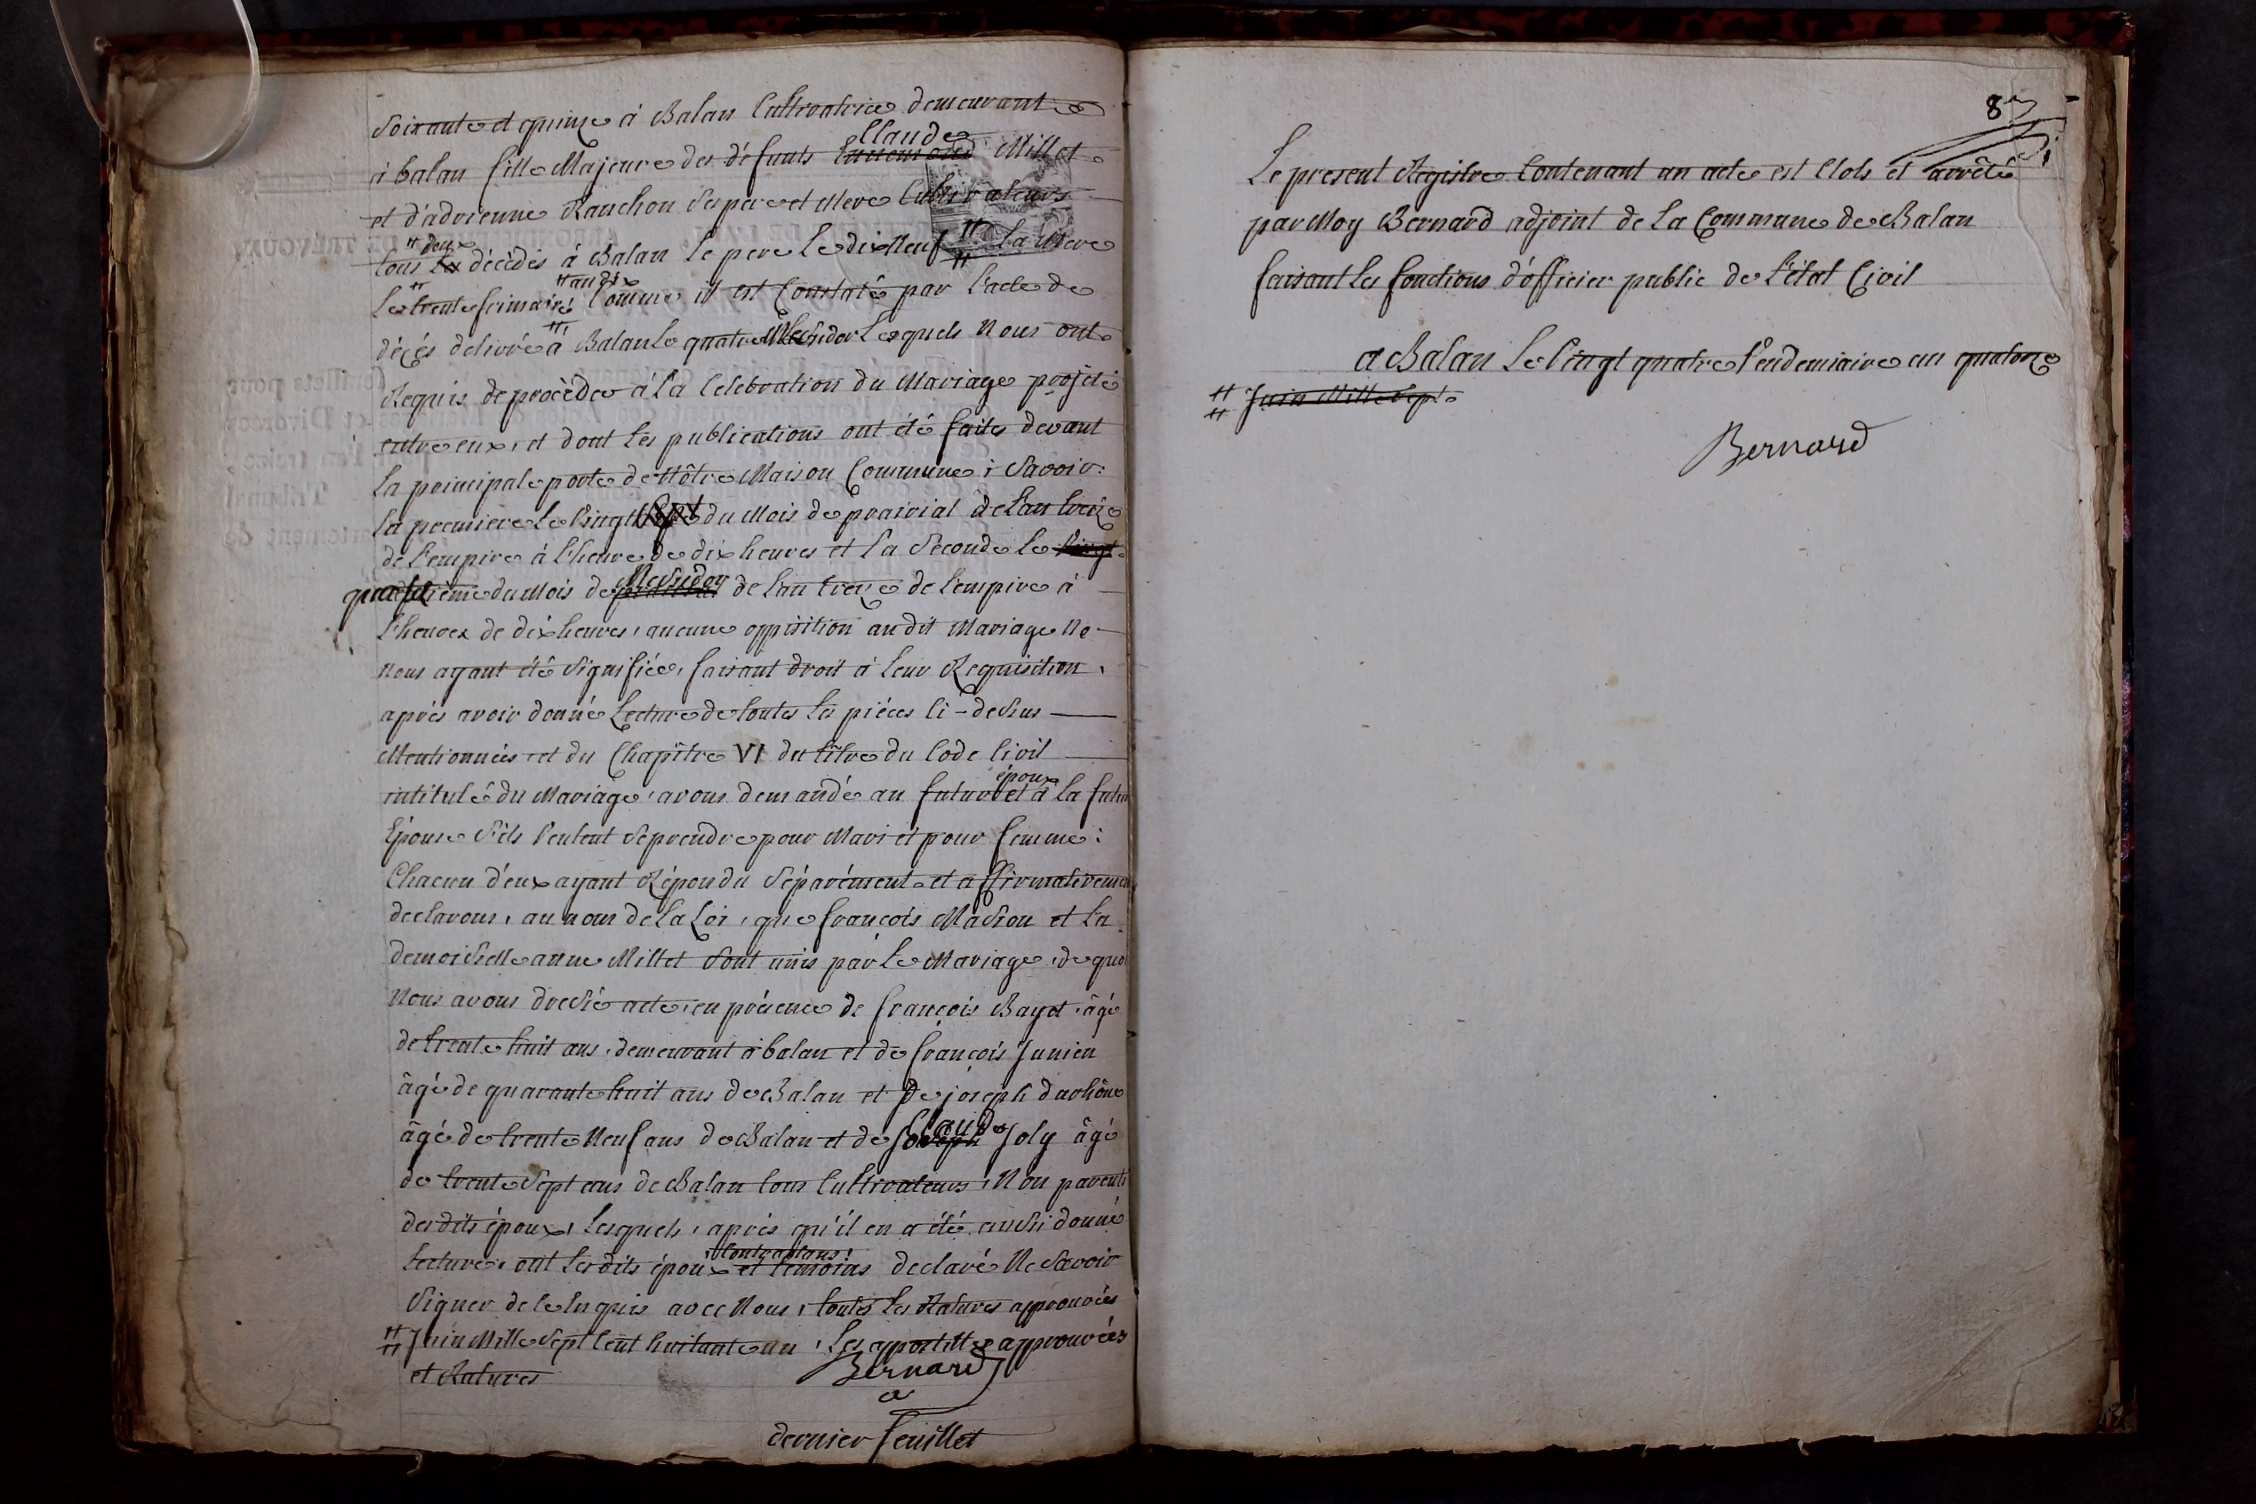 Soixante et quinze à Balan Cultivatrice demeurante
à balan fille Majeure des défunts Claude Millet
et d'adrienne Ranchon Ses pere et Mere Cultivateurs
tous deux décédés à Balan le pere le dix Neuf # La Mere
Le trente frimaire an dix Comme il est Constaté par l'acte de
décés delivré à Balan le quatre Messidor Lesquels Nous ont
Requis de procéder à la Celebration du Mariage projeté
entre eux, et dont les publications ont été faites devant
la principale porte de Nôtre Maison Commune ; Savoir :
la premiere le Vingt Sept du Mois de prairial de l'an treize
de l'empire à l'heure de dix heures et la Seconde le Vingt
quatrième du Mois de Messidor de l'an treize de l'empire à
l'heure de dix heures, aucune opposition audit Mariage Ne
Nous ayant été Signifiée, faisant droit à leur Requisition,
après avoir donné Lecture de toutes les piéces Ci-dessus
Mentionnées et du Chapitre VI du titre du Code Civil
intitulé du Mariage, avons demandé au futur époux et à la futur
Epouse S'ils Veulent Se prendre pour Mari et pour femme :
Chacun d'eux ayant Répondu Séparément et affirmativemen
declarons, au nom de la Loi, que françois Masson et la
demoiselle anne Millet Sont unis par le Mariage, de quoi
Nous avons dressé acte, en présence de françois Bayet, âgé
de trente huit ans, demeurant à balan et de françois Junien
âgé de quarante huit ans de Balan et de joseph
âgé de trente Neuf ans de Balan et de Claude Joly âgé
de trente Sept ans de Balan tous Cultivateurs, Non parents
des dits époux, Lesquels, après qu'il en a été aussi donné
Lecture, ont les dits époux Contractans et temoins declaré Ne Savoir
Signer de Ce Enquis avec Nous, toutes les Ratures approuvées
# Juin Mille Sept Cent huitante un, Les apostilles approuvées
et Ratures
Bernard
a
dernier feuillet
8
Le present Registre Contenant un acte est Clos et arrêté
par Moy Bernard adjoint de la Commune de Balan
faisant les fonctions d'officier public de l'état Civil
a Balan Le Vingt quatre Vendemiaire an quatorze
# Juin Mille Sept
Bernard